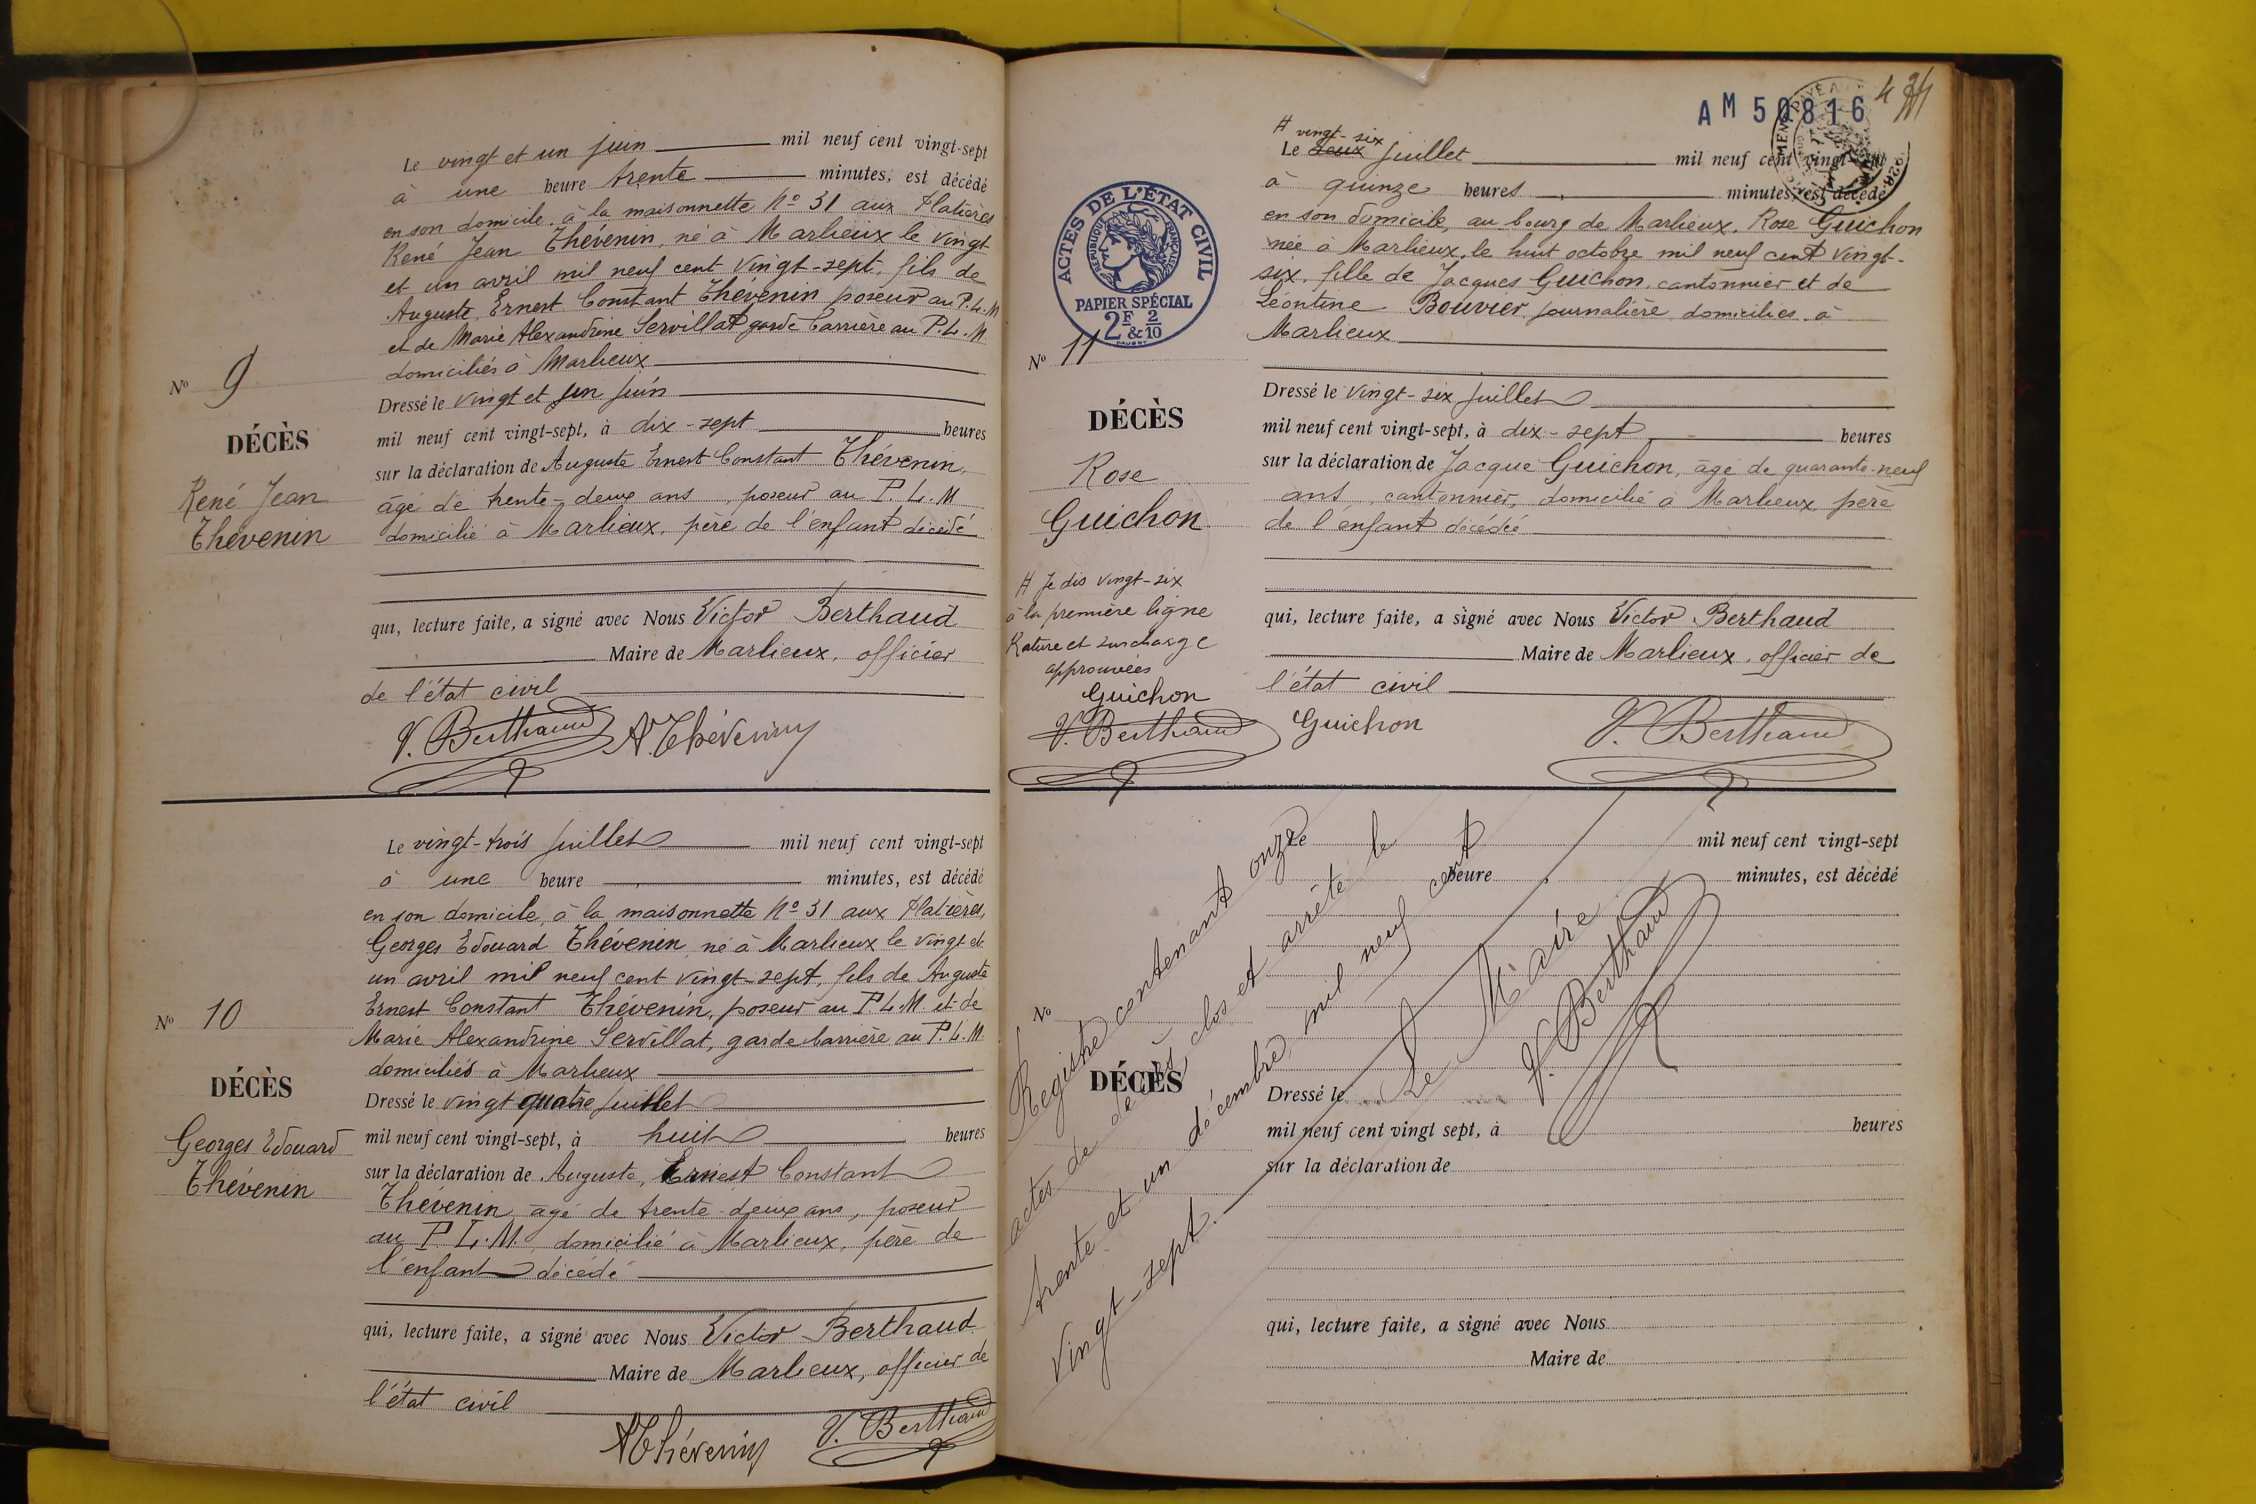 Le vingt et un juin mil neuf cent vingt-sept
à une heure trente minutes, est décédé
en son domicile à la maisonnette No 31 aux Platières
René Jean Thévenin, né à Marlieux le vingt
et un avril mil neuf cent vingt-sept, fils de
Auguste, Ernest Constant Thévenin poseur au P.L.M
et de Marie Alexandrine Servillat garde barrière au P.L.M
domiciliés à Marlieux
No 9
DÉCÈS
René Jean
Thévenin
Dressé le vingt et un juin
mil neuf cent vingt-sept, à dix-sept heures
sur la déclaration de Auguste Ernest Constant Thévenin,
âgé de trente-deux ans, poseur au P.L.M
domicilié à Marlieux, père de l'enfant décédé
qui, lecture faite, a signé avec Nous Victor Berthaud
Maire de Marlieux, officier
de l'état civil
V. Berthaud A. Thévenin
Le vingt-trois juillet mil neuf cent vingt-sept
à une heure minutes, est décédé
en son domicile, à la maisonnette No 31 aux Platières,
Georges Edouard Thévenin, né à Marlieux le vingt et
un avril mil neuf cent vingt-sept, fils de Auguste
Ernest Constant Thévenin, poseur au P.L.M et de
Marie Alexandrine Servillat, garde barrière au P.L.M.
domiciliés à Marlieux
No 10
DÉCÈS
Georges Edouard
Thévenin
Dressé le vingt quatre juillet
mil neuf cent vingt-sept, à huit heures
sur la déclaration de Auguste, Ernest Constant
Thévenin, âgé de trente-deux ans, poseur
au P.L.M. domicilié à Marlieux, père de
l'enfant décédé
qui, lecture faite, a signé avec Nous Victor Berthaud
Maire de Marlieux, officier de
l'état civil
A Thévenin V. Berthaud
AM 50816
ACTES DE L'ÉTAT CIVIL
RÉPUBLIQUE FRANÇAISE
PAPIER SPÉCIAL
2F & 2/10
# vingt-six
Le deux juillet mil neuf cent vingt-sept
à quinze heures minutes, est décédé
en son domicile, au bourg de Marlieux, Rose Guichon
née à Marlieux, le huit octobre mil neuf cent vingt-
six, fille de Jacques Guichon, cantonnier et de
Léontine Bouvier, journalière domiciliés à
Marlieux
No 11
DÉCÈS
Rose
Guichon
# Je dis vingt-six
à la première ligne
Rature et surcharge
approuvées
Guichon
V. Berthaud
Dressé le vingt-six juillet
mil neuf cent vingt-sept, à dix-sept heures
sur la déclaration de Jacque Guichon, âgé de quarante-neuf
ans, cantonnier, domicilié à Marlieux, père
de l'enfant décédée
qui, lecture faite, a signé avec Nous Victor Berthaud
Maire de Marlieux, officier de
l'état civil
Guichon V. Berthaud
Le mil neuf cent vingt-sept
heure minutes, est décédé
No
DÉCÈS
Dressé le
mil neuf cent vingt sept, à heures
sur la déclaration de
qui, lecture faite, a signé avec Nous
Maire de
Registre contenant onze
actes de décès, clos et arrêté le
trente et un décembre mil neuf cent
vingt-sept.
Le Maire
V. Berthaud